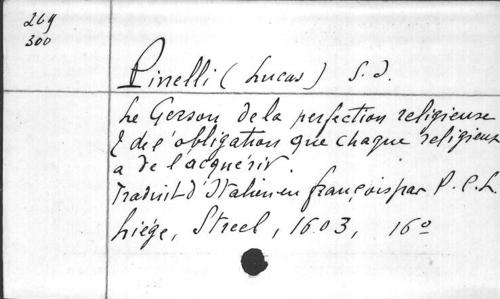 269
300
Pinelli (Lucas) S. J.
Le Gerson de la perfection religieuse
& de l'obligation que chaque religieux
a de l'acquérir.
Traduit d'Italien en françois par P. C. L.
Liége, Streel, 1603, 16º